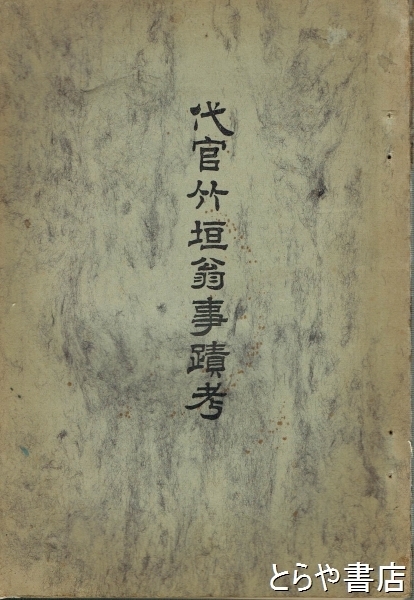 代官竹垣翁事蹟考
とらや書店